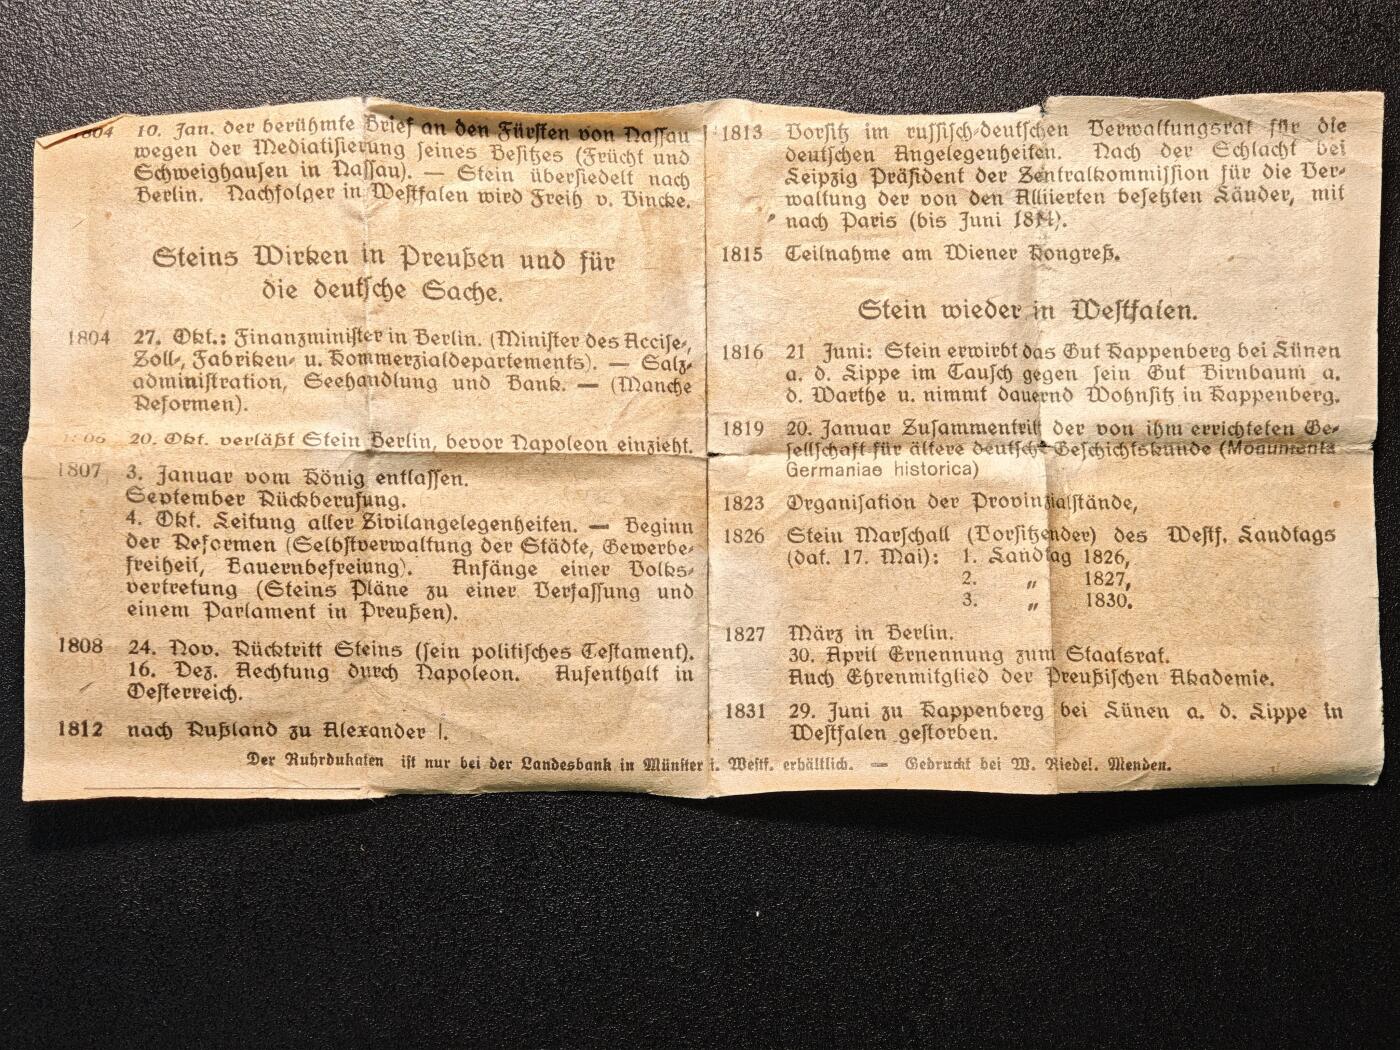 1804 10. Jan. der berühmte Brief an den Fürsten von Nassau
wegen der Mediatisierung seines Besitzes (Frücht und
Schweighausen in Nassau). — Stein übersiedelt nach
Berlin. Nachfolger in Westfalen wird Freih v. Vincke.
Steins Wirken in Preußen und für
die deutsche Sache.
1804 27. Okt.: Finanzminister in Berlin. (Minister des Accise-,
Zoll-, Fabriken- u. Kommerzialdepartements). — Salz-
administration, Seehandlung und Bank. — (Manche
Reformen).
1806 20. Okt. verläßt Stein Berlin, bevor Napoleon einzieht.
1807 3. Januar vom König entlassen.
September Rückberufung.
4. Okt. Leitung aller Zivilangelegenheiten. — Beginn
der Reformen (Selbstverwaltung der Städte, Gewerbe-
freiheit, Bauernbefreiung). Anfänge einer Volks-
vertretung (Steins Pläne zu einer Verfassung und
einem Parlament in Preußen).
1808 24. Nov. Rücktritt Steins (sein politisches Testament).
16. Dez. Aechtung durch Napoleon. Aufenthalt in
Oesterreich.
1812 nach Rußland zu Alexander I.
1813 Vorsitz im russisch-deutschen Verwaltungsrat für die
deutschen Angelegenheiten. Nach der Schlacht bei
Leipzig Präsident der Zentralkommission für die Ver-
waltung der von den Alliierten besetzten Länder, mit
nach Paris (bis Juni 1814).
1815 Teilnahme am Wiener Kongreß.
Stein wieder in Westfalen.
1816 21 Juni: Stein erwirbt das Gut Kappenberg bei Lünen
a. d. Lippe im Tausch gegen sein Gut Birnbaum a.
d. Warthe u. nimmt dauernd Wohnsitz in Kappenberg.
1819 20. Januar Zusammentritt der von ihm errichteten Ge-
sellschaft für ältere deutsche Geschichtskunde (Monumenta
Germaniae historica)
1823 Organisation der Provinzialstände,
1826 Stein Marschall (Vorsitzender) des Westf. Landtags
(dat. 17. Mai): 1. Landtag 1826,
2. „ 1827,
3. „ 1830.
1827 März in Berlin.
30. April Ernennung zum Staatsrat.
Auch Ehrenmitglied der Preußischen Akademie.
1831 29. Juni zu Kappenberg bei Lünen a. d. Lippe in
Westfalen gestorben.
Der Ruhrdukaten ist nur bei der Landesbank in Münster i. Westf. erhältlich. — Gedruckt bei W. Riedel. Menden.